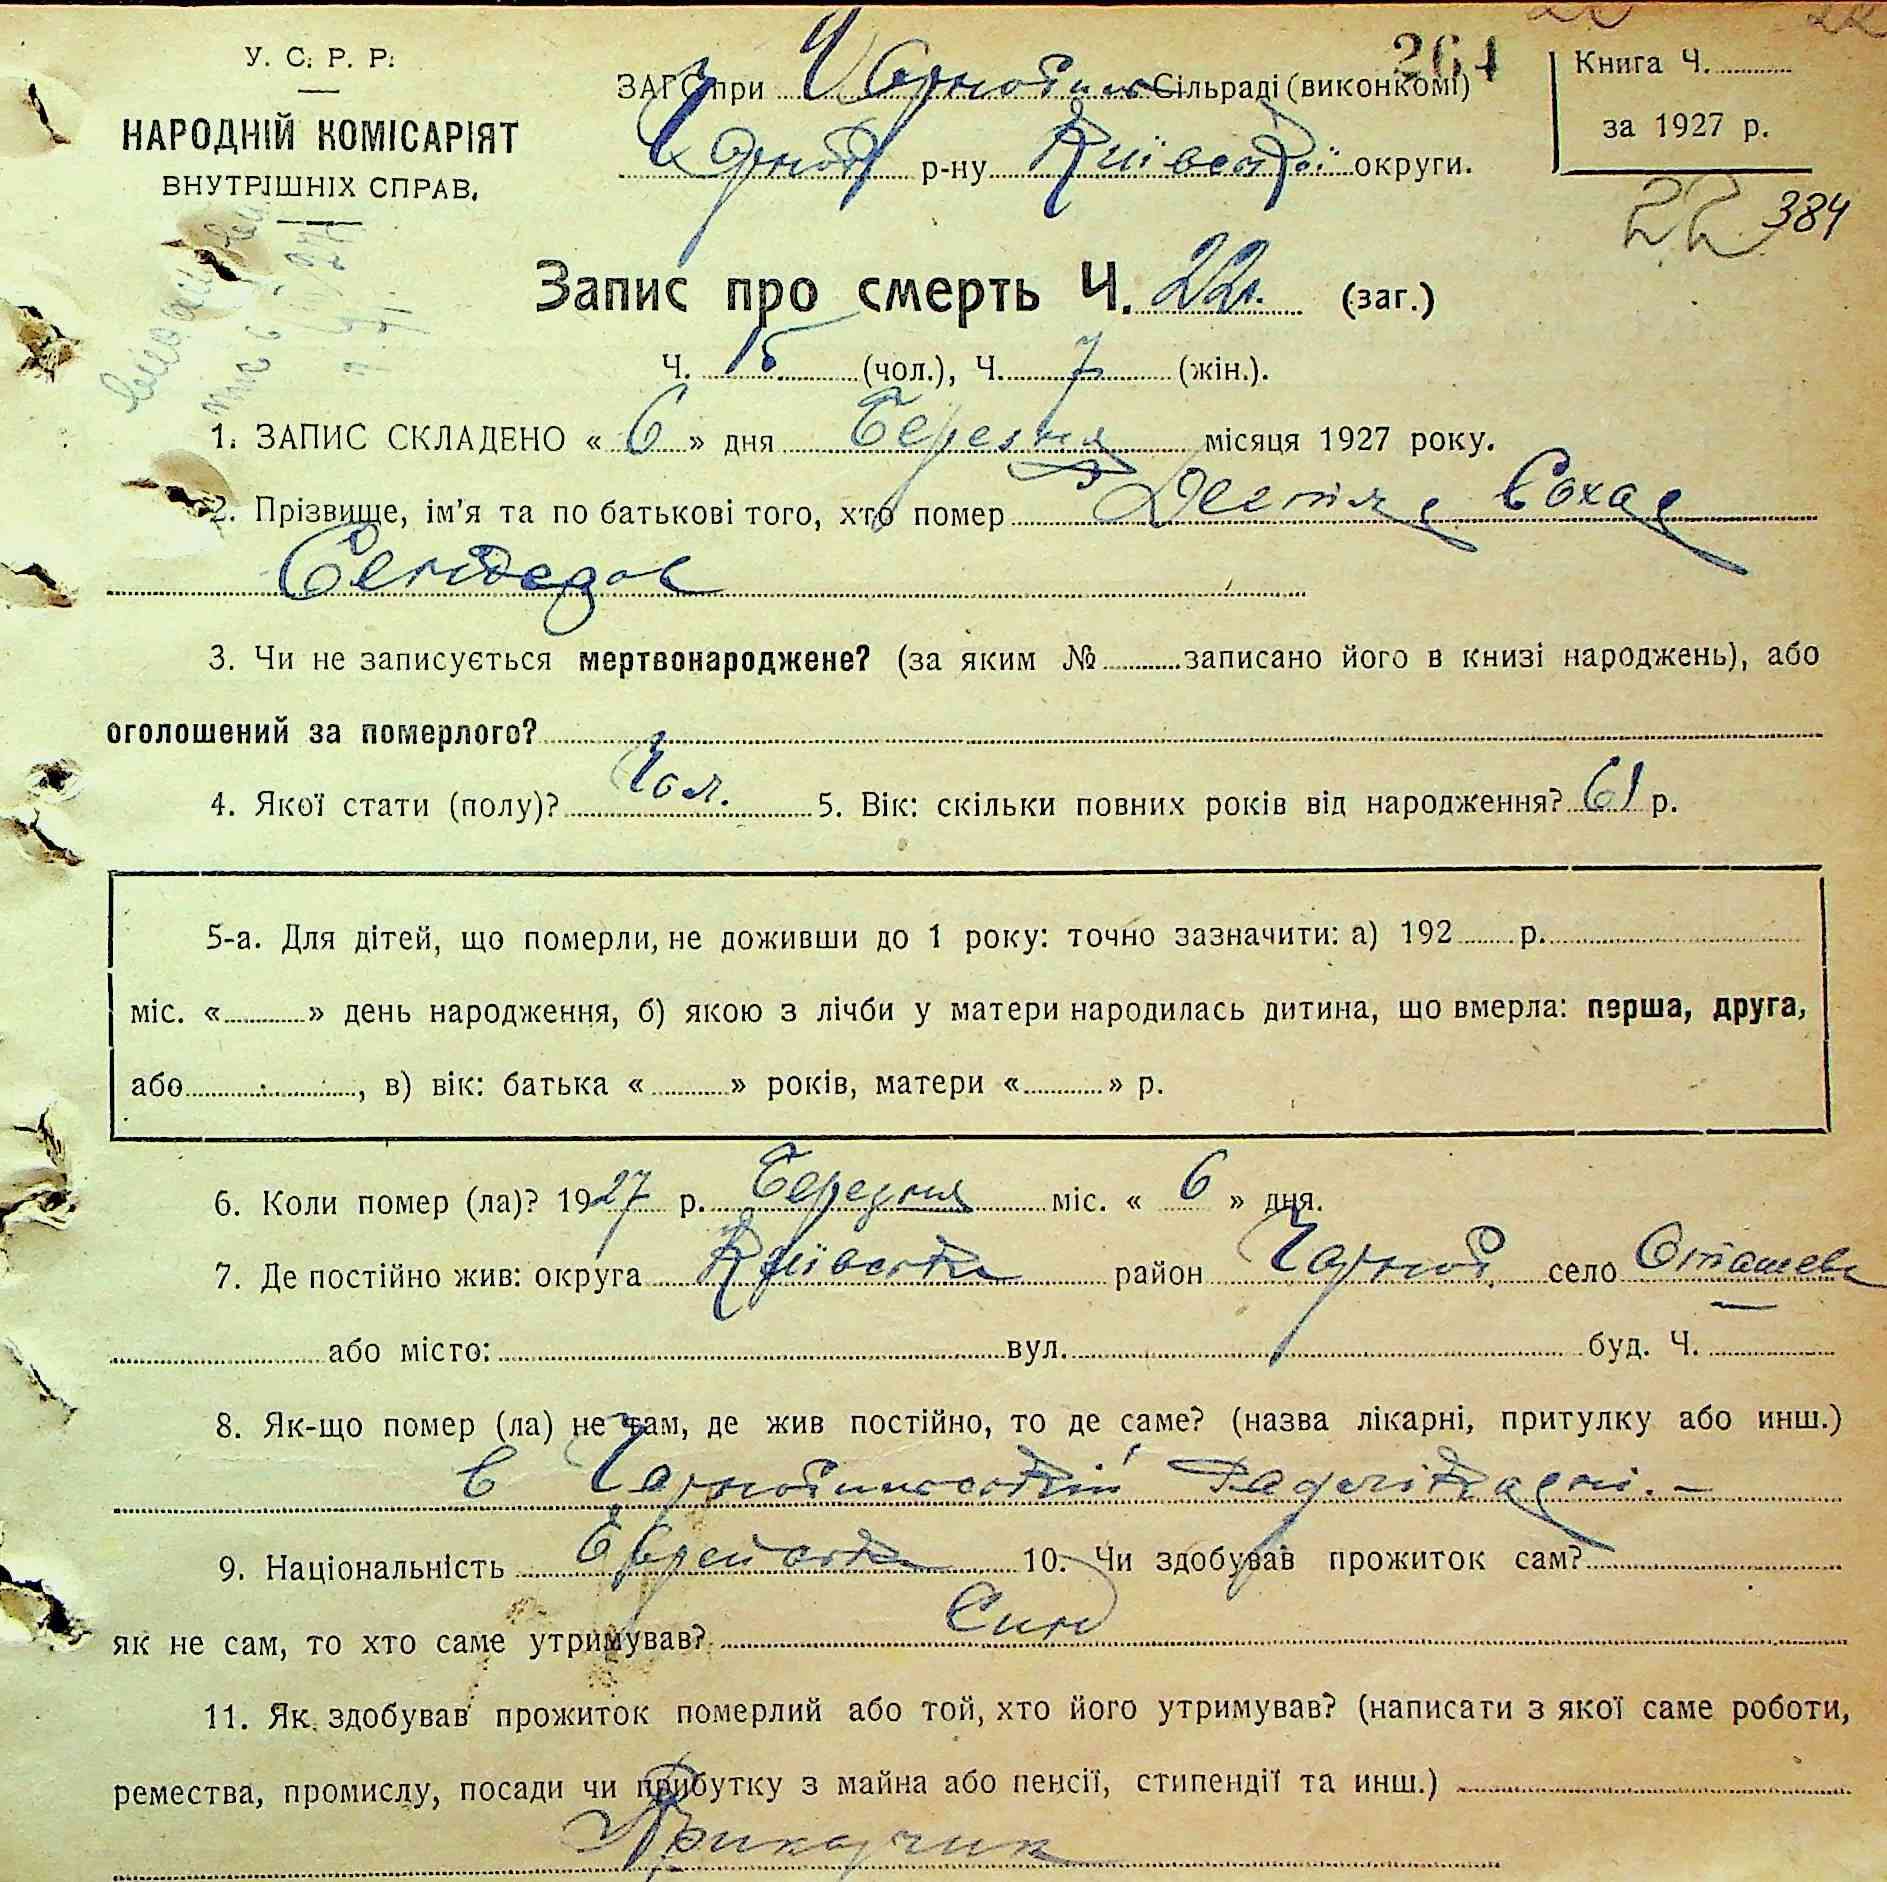 У. С. Р. Р.
НАРОДНІЙ КОМІСАРІЯТ
ВНУТРІШНІХ СПРАВ.
264
ЗАГС при Чернобил Сільраді (виконкомі)
Черноб р-ну Київської округи.
Книга Ч.
за 1927 р.
22 384
Запис про смерть Ч. 22 (заг.)
Ч. 15 (чол.), Ч. 7 (жін.).
1. ЗАПИС СКЛАДЕНО « 6 » дня Березня місяця 1927 року.
2. Прізвище, ім'я та по батькові того, хто помер
3. Чи не записується мертвонароджене? (за яким № записано його в книзі народжень), або
оголошений за померлого?
4. Якої стати (полу)? Чол. 5. Вік: скільки повних років від народження? 61 р.
5-а. Для дітей, що померли, не доживши до 1 року: точно зазначити: а) 192 р.
міс. « » день народження, б) якою з лічби у матери народилась дитина, що вмерла: перша, друга,
або , в) вік: батька « » років, матери « » р.
6. Коли помер (ла)? 1927 р. Березня міс. « 6 » дня.
7. Де постійно жив: округа Київська район Черноб. село
або місто: вул. буд. Ч.
8. Як-що помер (ла) не там, де жив постійно, то де саме? (назва лікарні, притулку або инш.)
в Чернобильській
9. Національність Еврейська 10. Чи здобував прожиток сам?
як не сам, то хто саме утримував? Син
11. Як здобував прожиток померлий або той, хто його утримував? (написати з якої саме роботи,
ремества, промислу, посади чи прибутку з майна або пенсії, стипендії та инш.)
Прикащик